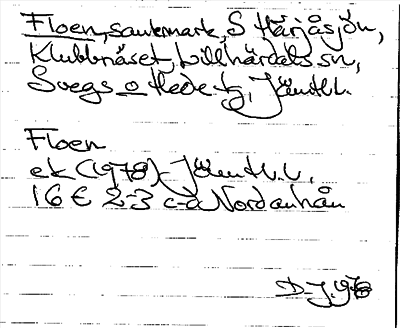 Floen, sankmark, S Härjåsjön,
Klubbnäset, Lillhärdals sn,
Svegs o Hede tg, Jämtl.l.
Floen
ek (1978) Jämtl.l.
16 E 2-3 c-d Nordanhån
DJ 1978